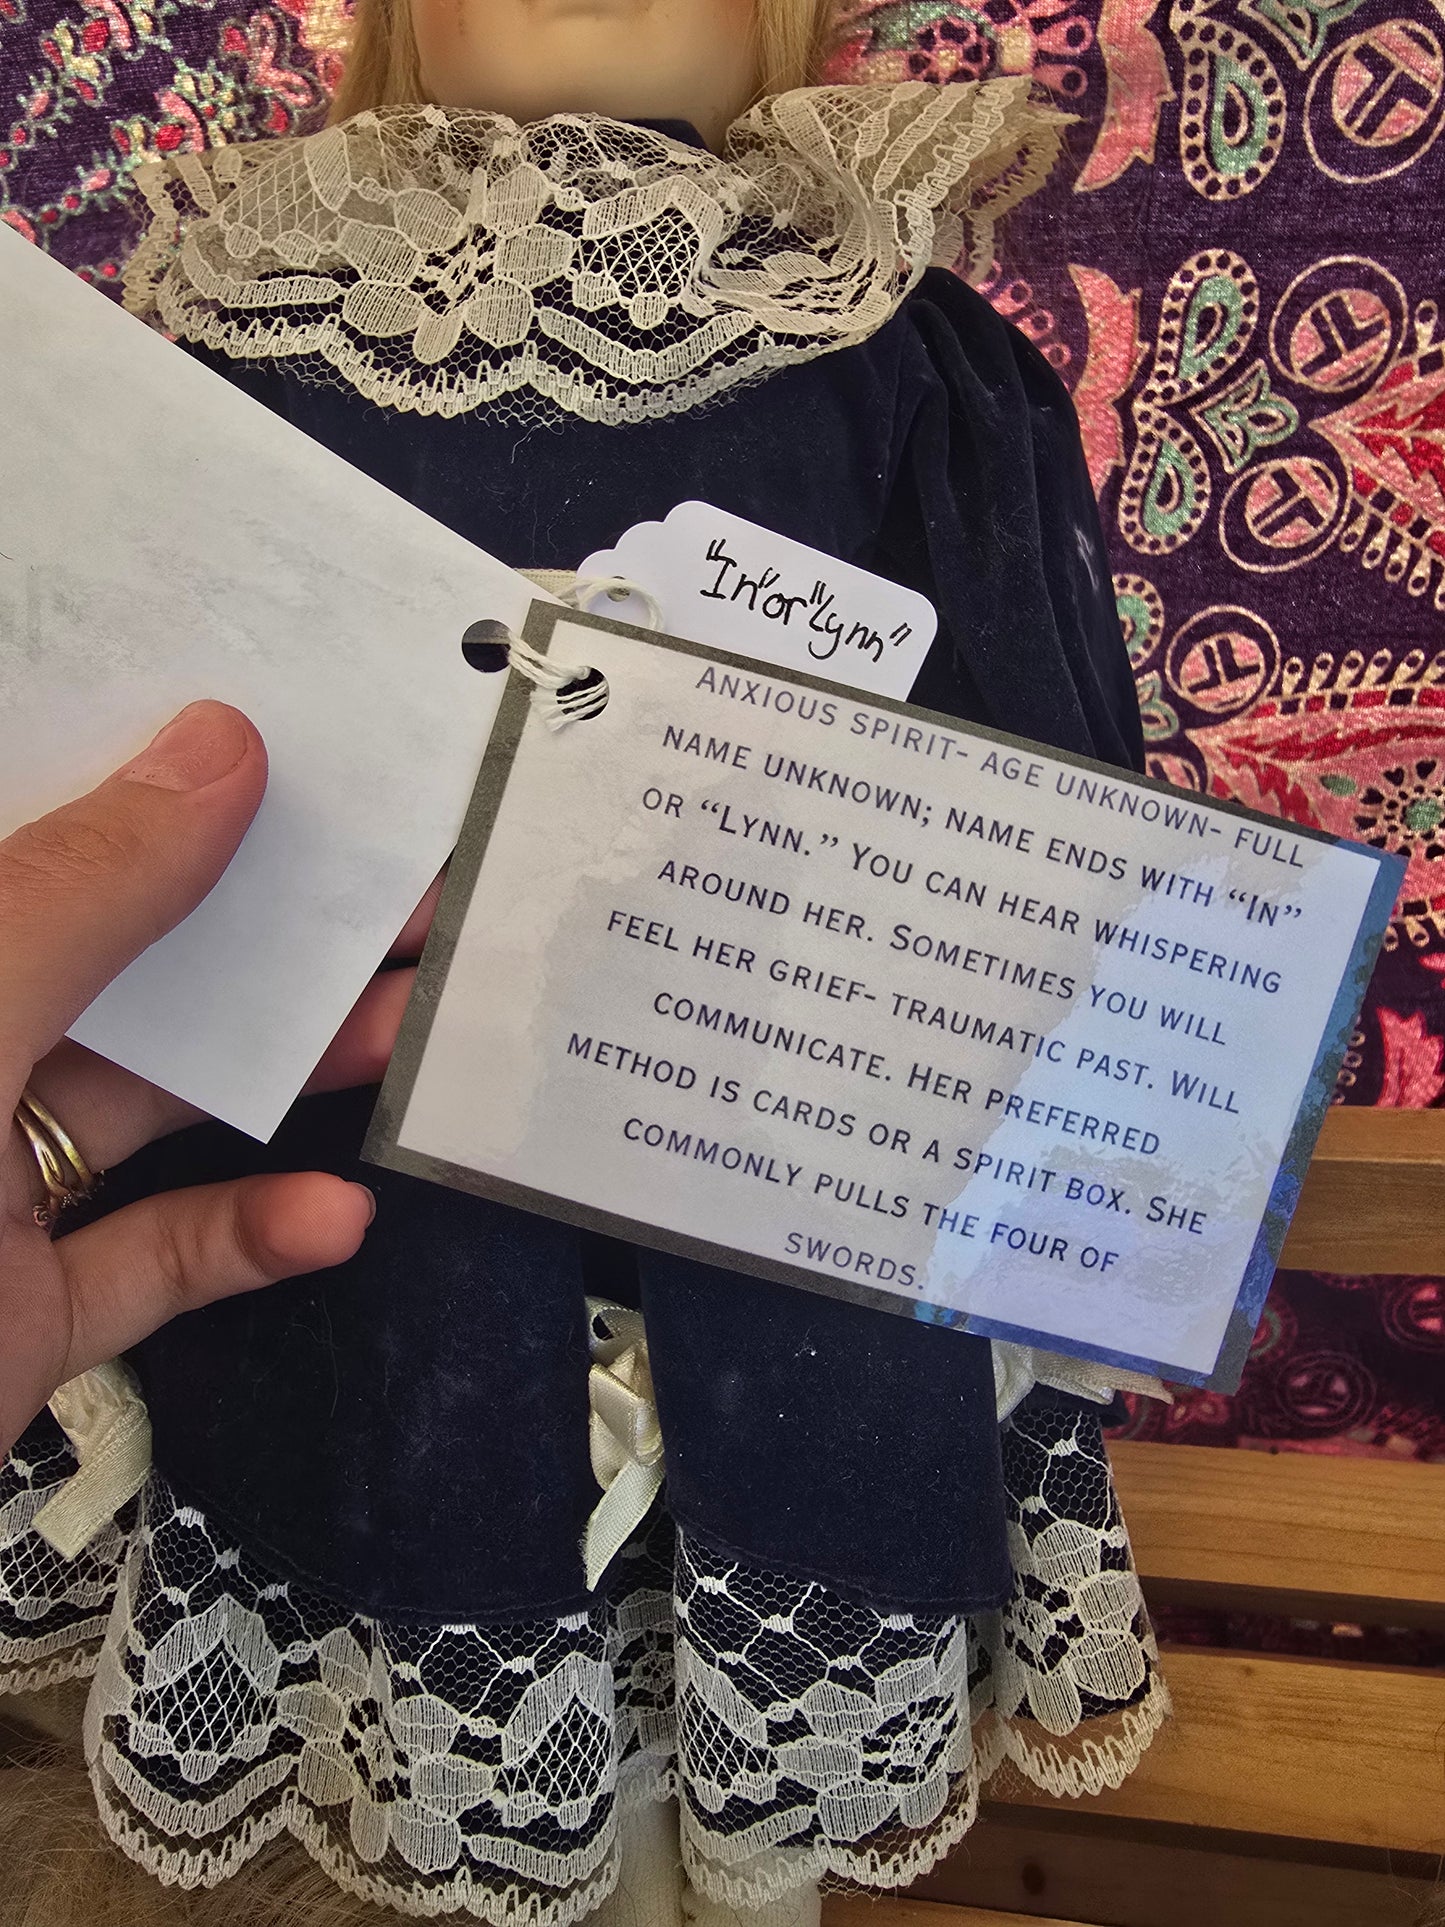 "In" or "Lynn"
ANXIOUS SPIRIT- AGE UNKNOWN- FULL
NAME UNKNOWN; NAME ENDS WITH "IN"
OR "LYNN." YOU CAN HEAR WHISPERING
AROUND HER. SOMETIMES YOU WILL
FEEL HER GRIEF- TRAUMATIC PAST. WILL
COMMUNICATE. HER PREFERRED
METHOD IS CARDS OR A SPIRIT BOX. SHE
COMMONLY PULLS THE FOUR OF
SWORDS.